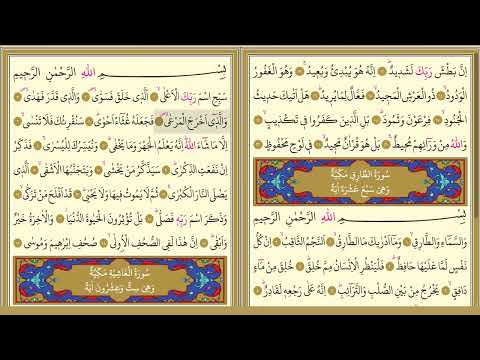 اِنَّ بَطْشَ رَبِّكَ لَشَد۪يدٌۜ ۝ اِنَّهُ هُوَ يُبْدِئُ وَيُع۪يدُۚ ۝ وَهُوَ الْغَفُورُ
الْوَدُودُۙ ۝ ذُو الْعَرْشِ الْمَج۪يدُۙ ۝ فَعَّالٌ لِمَا يُر۪يدُۜ ۝ هَلْ اَتٰيكَ حَد۪يثُ
الْجُنُودِۙ ۝ فِرْعَوْنَ وَثَمُودَۜ ۝ بَلِ الَّذ۪ينَ كَفَرُوا ف۪ي تَكْذ۪يبٍۙ ۝
وَاللّٰهُ مِنْ وَرَٓائِهِمْ مُح۪يطٌۚ ۝ بَلْ هُوَ قُرْاٰنٌ مَج۪يدٌۙ ۝ ف۪ي لَوْحٍ مَحْفُوظٍ ۝
سُورَةُ الطَّارِقِ مَكِّيَّةٌ
وَهِيَ سَبْعَ عَشْرَةَ اٰيَةً
بِسْمِ اللّٰهِ الرَّحْمٰنِ الرَّح۪يمِ
وَالسَّمَٓاءِ وَالطَّارِقِۙ ۝ وَمَٓا اَدْرٰيكَ مَا الطَّارِقُۙ ۝ اَلنَّجْمُ الثَّاقِبُۙ ۝ اِنْ كُلُّ
نَفْسٍ لَمَّا عَلَيْهَا حَافِظٌۜ ۝ فَلْيَنْظُرِ الْاِنْسَانُ مِمَّ خُلِقَۜ ۝ خُلِقَ مِنْ مَٓاءٍ
دَافِقٍۙ ۝ يَخْرُجُ مِنْ بَيْنِ الصُّلْبِ وَالتَّرَٓائِبِۜ ۝ اِنَّهُ عَلٰى رَجْعِه۪ لَقَادِرٌۜ ۝
بِسْمِ اللّٰهِ الرَّحْمٰنِ الرَّح۪يمِ
سَبِّحِ اسْمَ رَبِّكَ الْاَعْلٰىۙ ۝ اَلَّذ۪ي خَلَقَ فَسَوّٰىۙ ۝ وَالَّذ۪ي قَدَّرَ فَهَدٰىۙ ۝
وَالَّذ۪ٓي اَخْرَجَ الْمَرْعٰىۙ ۝ فَجَعَلَهُ غُثَٓاءً اَحْوٰىۜ ۝ سَنُقْرِئُكَ فَلَا تَنْسٰىۙ ۝
اِلَّا مَا شَٓاءَ اللّٰهُۜ اِنَّهُ يَعْلَمُ الْجَهْرَ وَمَا يَخْفٰىۜ ۝ وَنُيَسِّرُكَ لِلْيُسْرٰىۚ ۝ فَذَكِّرْ
اِنْ نَفَعَتِ الذِّكْرٰىۜ ۝ سَيَذَّكَّرُ مَنْ يَخْشٰىۙ ۝ وَيَتَجَنَّبُهَا الْاَشْقٰىۙ ۝ اَلَّذ۪ي
يَصْلَى النَّارَ الْكُبْرٰىۚ ۝ ثُمَّ لَا يَمُوتُ ف۪يهَا وَلَا يَحْيٰىۜ ۝ قَدْ اَفْلَحَ مَنْ تَزَكّٰىۙ ۝
وَذَكَرَ اسْمَ رَبِّه۪ فَصَلّٰىۜ ۝ بَلْ تُؤْثِرُونَ الْحَيٰوةَ الدُّنْيَاۘ ۝ وَالْاٰخِرَةُ خَيْرٌ
وَاَبْقٰىۜ ۝ اِنَّ هٰذَا لَفِي الصُّحُفِ الْاُو۫لٰىۙ ۝ صُحُفِ اِبْرٰه۪يمَ وَمُوسٰى ۝
سُورَةُ الْغَاشِيَةِ مَكِّيَّةٌ
وَهِيَ سِتٌّ وَعِشْرُونَ اٰيَةً